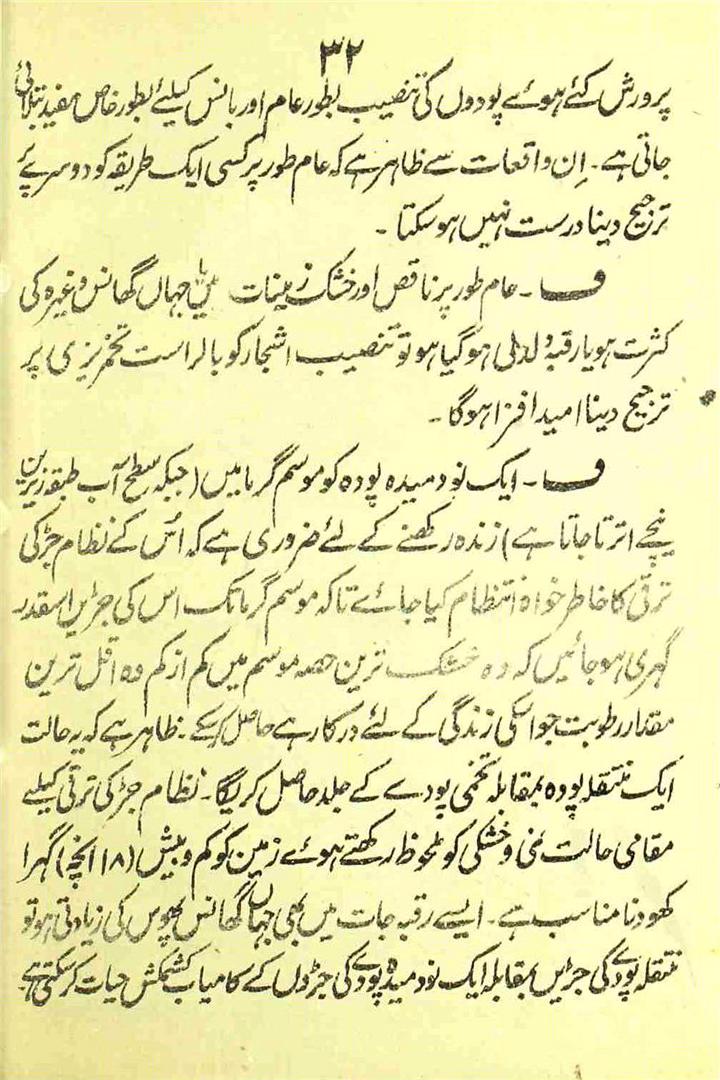 ۳۲
پرورش کئے ہوئے پودوں کی تنصیب بطور عام اور بانس کیلئے بطور خاص مفید بتلائی
جاتی ہے۔ اِن واقعات سے ظاہر ہے کہ عام طور پر کسی ایک طریقہ کو دوسرے پر
ترجیح دینا درست نہیں ہو سکتا ۔
ف ۔ عام طور پر ناقص اور خشک زمینات میں جہاں گھانس وغیرہ کی
کثرت ہو یا رقبہ دلدلی ہو گیا ہو تو تنصیب اشجار کو بالراست تخمریزی پر
ترجیح دینا امید افزا ہوگا ۔
ف ۔ ایک نودمیدہ پودہ کو موسم گرما میں (جبکہ سطح آب طبقہ زیرین
نیچے اترتا جاتا ہے) زندہ رکھنے کے لئے ضروری ہے کہ اُس کے نظام جڑ کی
ترقی کا خاطر خواہ انتظام کیا جائے تاکہ موسم گرما تک اس کی جڑیں اسقدر
گہری ہو جائیں کہ وہ خشک ترین حصہ موسم میں کم از کم وہ اقل ترین
مقدار رطوبت جو اسکی زندگی کے لئے درکار ہے حاصل کرسکے ۔ ظاہر ہے کہ یہ حالت
ایک منتقلہ پودہ بمقابلہ تخمی پودے کے جلد حاصل کریگا ۔ نظام جڑ کی ترقی کیلئے
مقامی حالت نمی و خشکی کو ملحوظ رکھتے ہوئے زمین کو کم و بیش (۱۸ انچہ) گہرا
کھودنا مناسب ہے ۔ ایسے رقبہ جات میں بھی جہاں گھانس پھوس کی زیادتی ہو تو
منتقلہ پودے کی جڑیں بمقابلہ ایک نودمیدہ پودے کی جڑوں کے کامیاب کشمکش حیات کرسکتی ہے۔